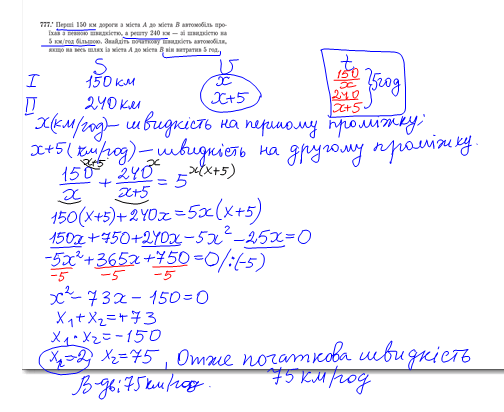 777.• Перші 150 км дороги з міста А до міста В автомобіль про-
їхав з певною швидкістю, а решту 240 км — зі швидкістю на
5 км/год більшою. Знайдіть початкову швидкість автомобіля,
якщо на весь шлях із міста А до міста В він витратив 5 год.
S V t
I 150 км x 150/x
II 240 км x+5 240/x+5 } 5 год
x(км/год) – швидкість на першому проміжку.
x+5(км/год) – швидкість на другому проміжку.
150/x (x+5) + 240/x+5 (x) = 5 (x(x+5))
150(x+5)+240x=5x(x+5)
150x+750+240x-5x²-25x=0
-5x²+365x+750=0/:(-5)
-5 -5 -5
x²-73x-150=0
x₁+x₂=+73
x₁·x₂=-150
x₁=-2 x₂=75, Отже початкова швидкість
75 км/год
В-дь: 75 км/год.